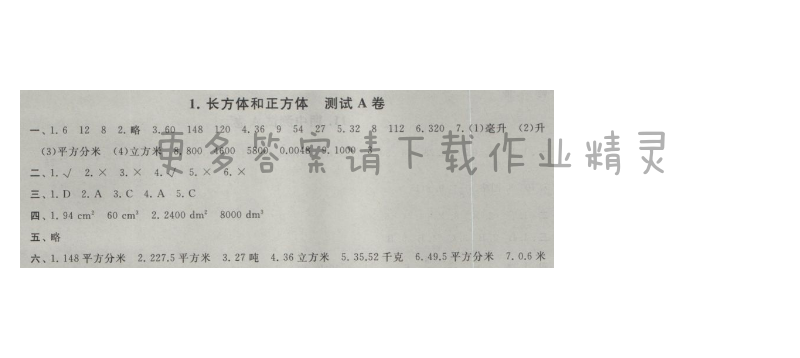 1. 长方体和正方体 测试 A 卷
一、1. 6 12 8 2. 略 3. 60 148 120 4. 36 9 54 27 5. 32 8 112 6. 320 7. (1)毫升 (2)升
(3)平方分米 (4)立方米 8. 800 1600 5800 0.0048 9. 1000 3
更多答案请下载作业精灵
二、1. √ 2. × 3. × 4. √ 5. × 6. ×
三、1. D 2. A 3. C 4. A 5. C
四、1. 94 cm² 60 cm³ 2. 2400 dm² 8000 dm³
五、略
六、1. 148 平方分米 2. 227.5 平方米 3. 27 吨 4. 36 立方米 5. 35.52 千克 6. 49.5 平方分米 7. 0.6 米